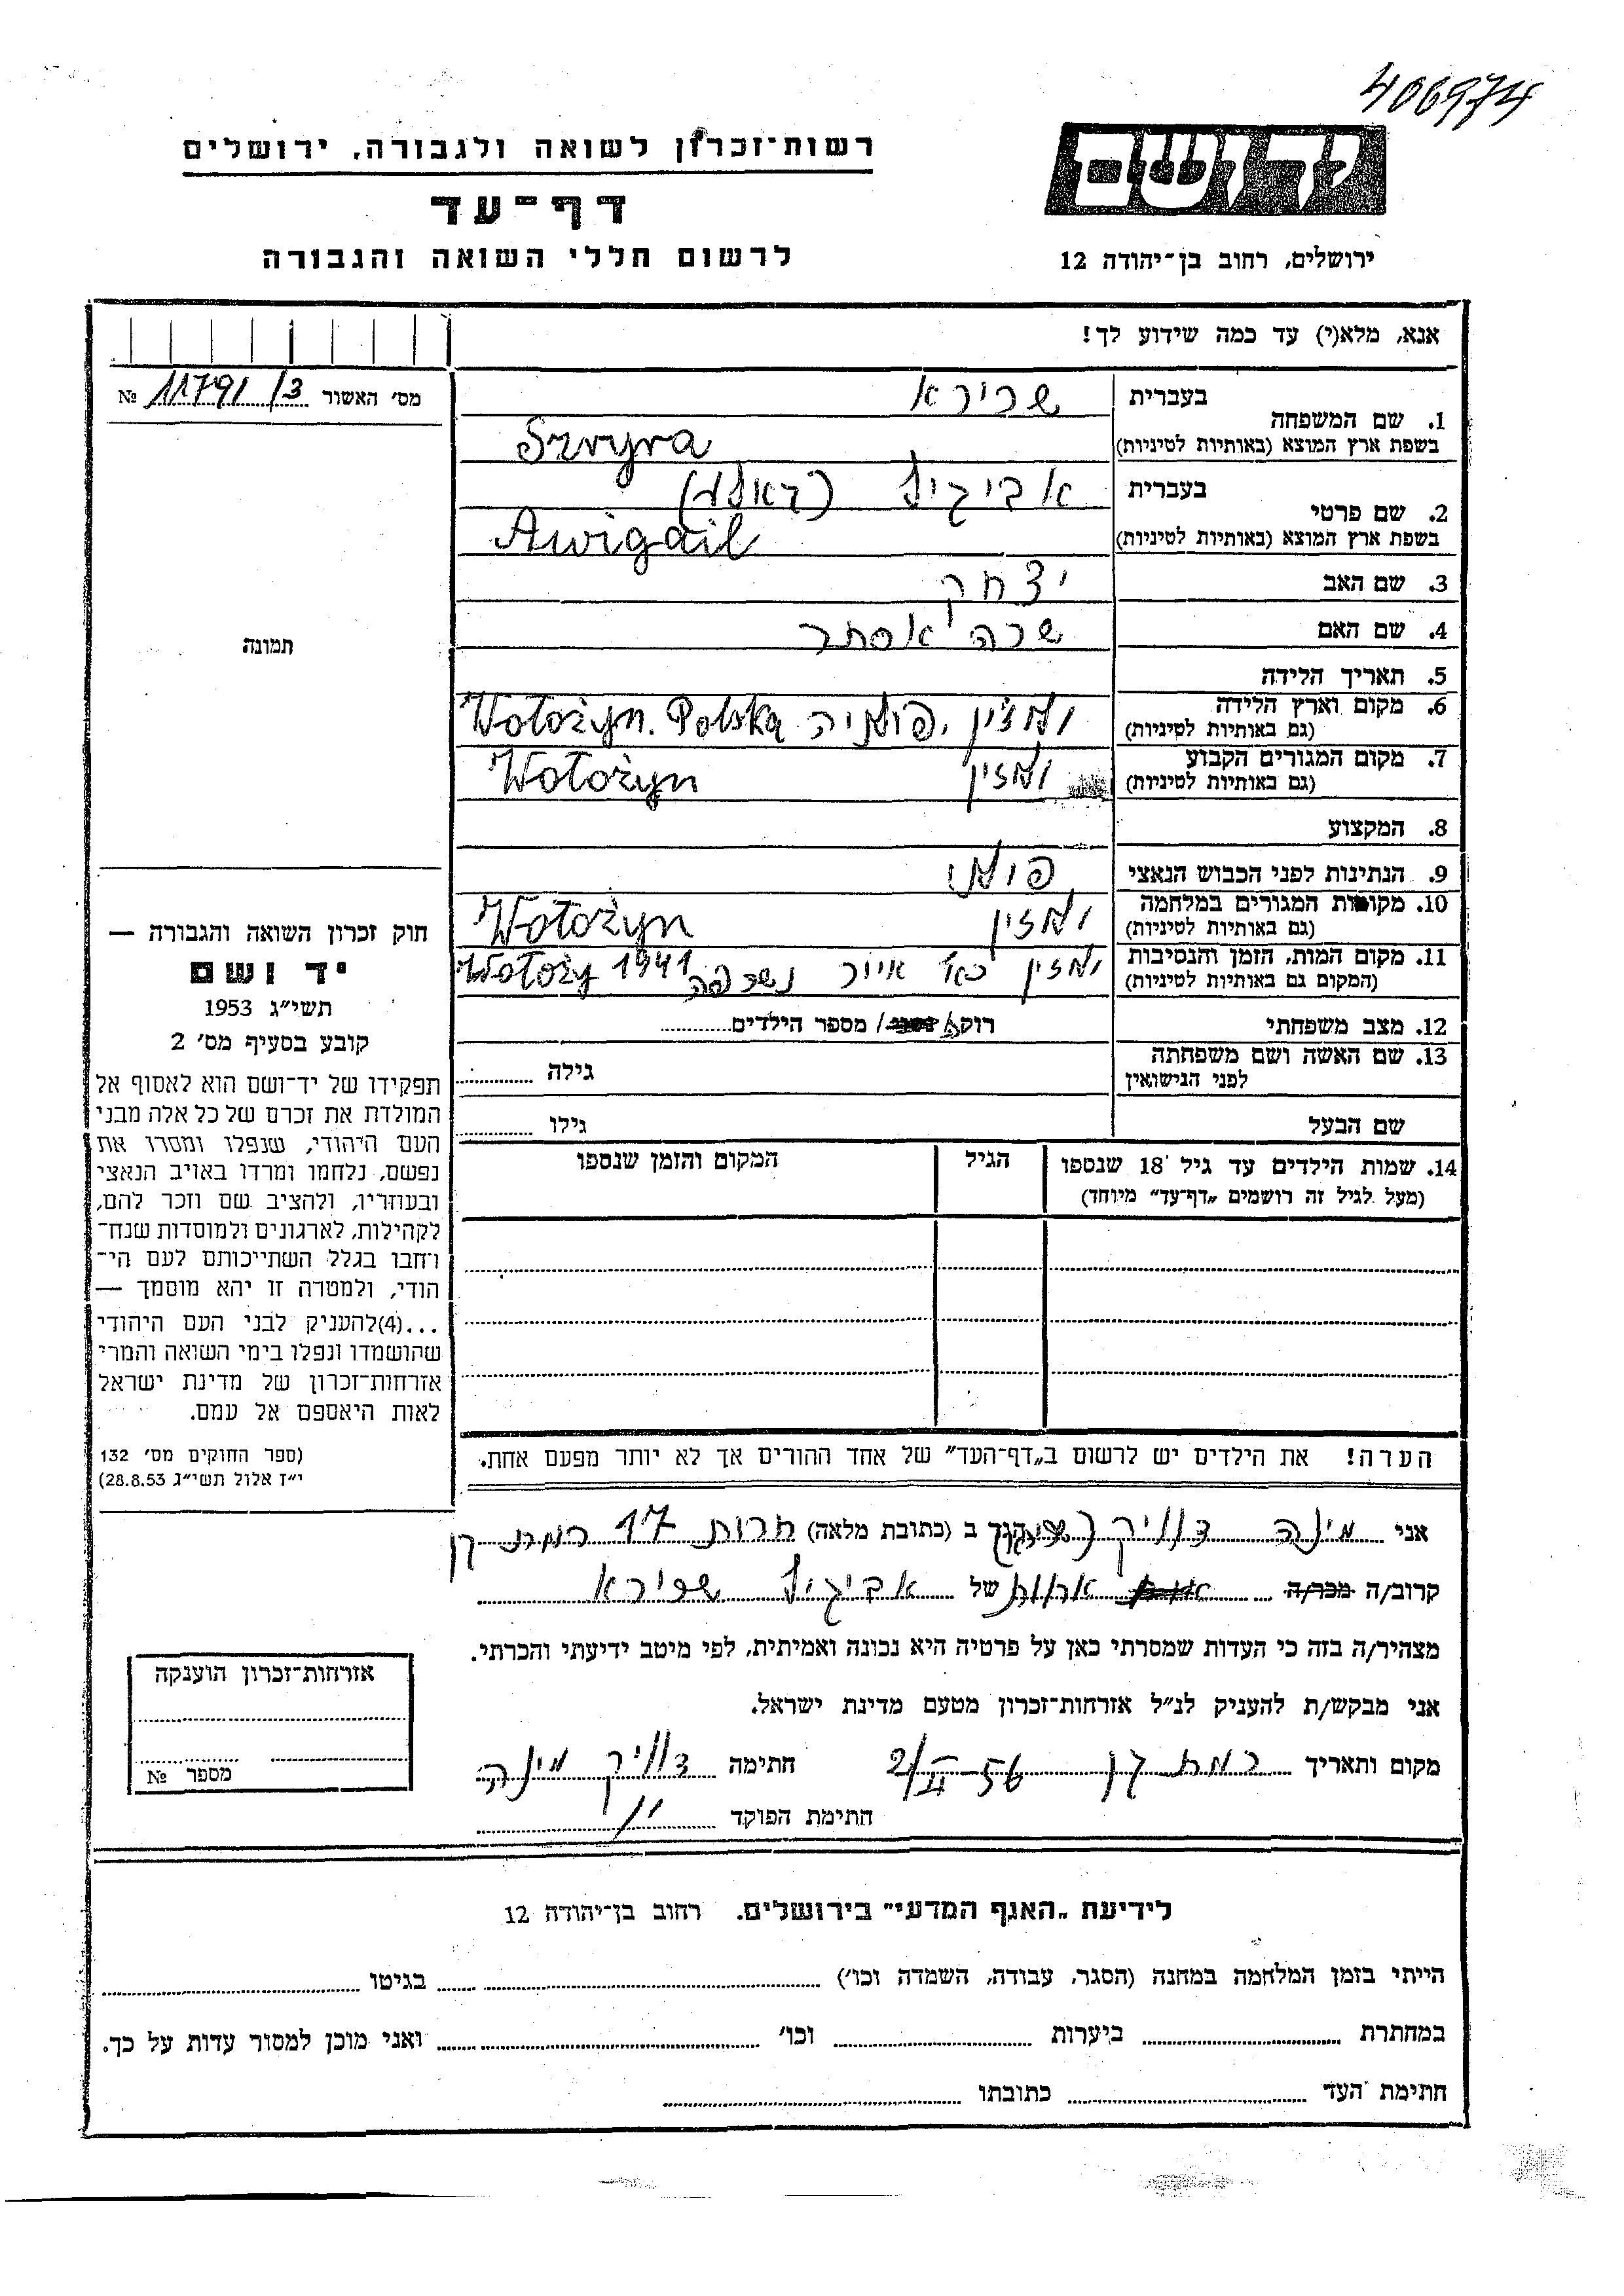 406974
יד ושם
רשות־זכרון לשואה ולגבורה, ירושלים
דף־עד
לרשום חללי השואה והגבורה
ירושלים, רחוב בן־יהודה 12
אנא, מלא(י) עד כמה שידוע לך!
מס׳ האשור 11791/3 №
תמונה
1. שם המשפחה
בעברית שרירא
בשפת ארץ המוצא (באותיות לטיניות) Szryra
2. שם פרטי
בעברית אביגיל
בשפת ארץ המוצא (באותיות לטיניות) Awigail
3. שם האב יצחק
4. שם האם שרה אסתר
5. תאריך הלידה
6. מקום וארץ הלידה
(גם באותיות לטיניות) ולוזין, פולניה Wołożyn. Polska
7. מקום המגורים הקבוע
(גם באותיות לטיניות) ולוזין Wołożyn
8. המקצוע
9. הנתינות לפני הכבוש הנאצי פולני
10. מקומות המגורים במלחמה
(גם באותיות לטיניות) ולוזין Wołożyn
11. מקום המות, הזמן והנסיבות
(המקום גם באותיות לטיניות) ולוזין אייר נשרפה 1941 Wołoży
12. מצב משפחתי רוק/ה / מספר הילדים
13. שם האשה ושם משפחתה
לפני הנישואין
גילה
שם הבעל גילו
14. שמות הילדים עד גיל 18 שנספו
(מעל לגיל זה רושמים „דף־עד״ מיוחד)
הגיל
המקום והזמן שנספו
חוק זכרון השואה והגבורה —
יד ושם
תשי״ג 1953
קובע בסעיף מס׳ 2
תפקידו של יד־ושם הוא לאסוף אל
המולדת את זכרם של כל אלה מבני
העם היהודי, שנפלו ומסרו את
נפשם, נלחמו ומרדו באויב הנאצי
ובעוזריו, ולהציב שם וזכר להם,
לקהילות, לארגונים ולמוסדות שנח־
רבו בגלל השתייכותם לעם הי־
הודי, ולמטרה זו יהא מוסמך —
...(4)להעניק לבני העם היהודי
שהושמדו ונפלו בימי השואה והמרי
אזרחות־זכרון של מדינת ישראל
לאות היאספם אל עמם.
(ספר החוקים מס׳ 132
י״ז אלול תשי״ג 28.8.53)
הערה! את הילדים יש לרשום ב„דף־העד״ של אחד ההורים אך לא יותר מפעם אחת.
אני מינה הגר ב (כתובת מלאה) חרות 17 רמת גן
קרוב/ה מכר/ה אחות של אביגיל שפירא
מצהיר/ה בזה כי העדות שמסרתי כאן על פרטיה היא נכונה ואמיתית, לפי מיטב ידיעתי והכרתי.
אני מבקש/ת להעניק לנ״ל אזרחות־זכרון מטעם מדינת ישראל.
מקום ותאריך רמת גן חתימה מינה
חתימת הפוקד
אזרחות־זכרון הוענקה
מספר №
לידיעת „האגף המדעי״ בירושלים. רחוב בן־יהודה 12
הייתי בזמן המלחמה במחנה (הסגר, עבודה, השמדה וכו׳) בגיטו
במחתרת ביערות וכו׳ ואני מוכן למסור עדות על כך.
חתימת העד כתובתו